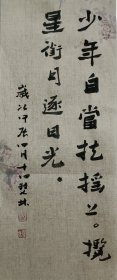 少年自當扶搖上。攬
星銜月逐日光。
歲次甲辰四月十四